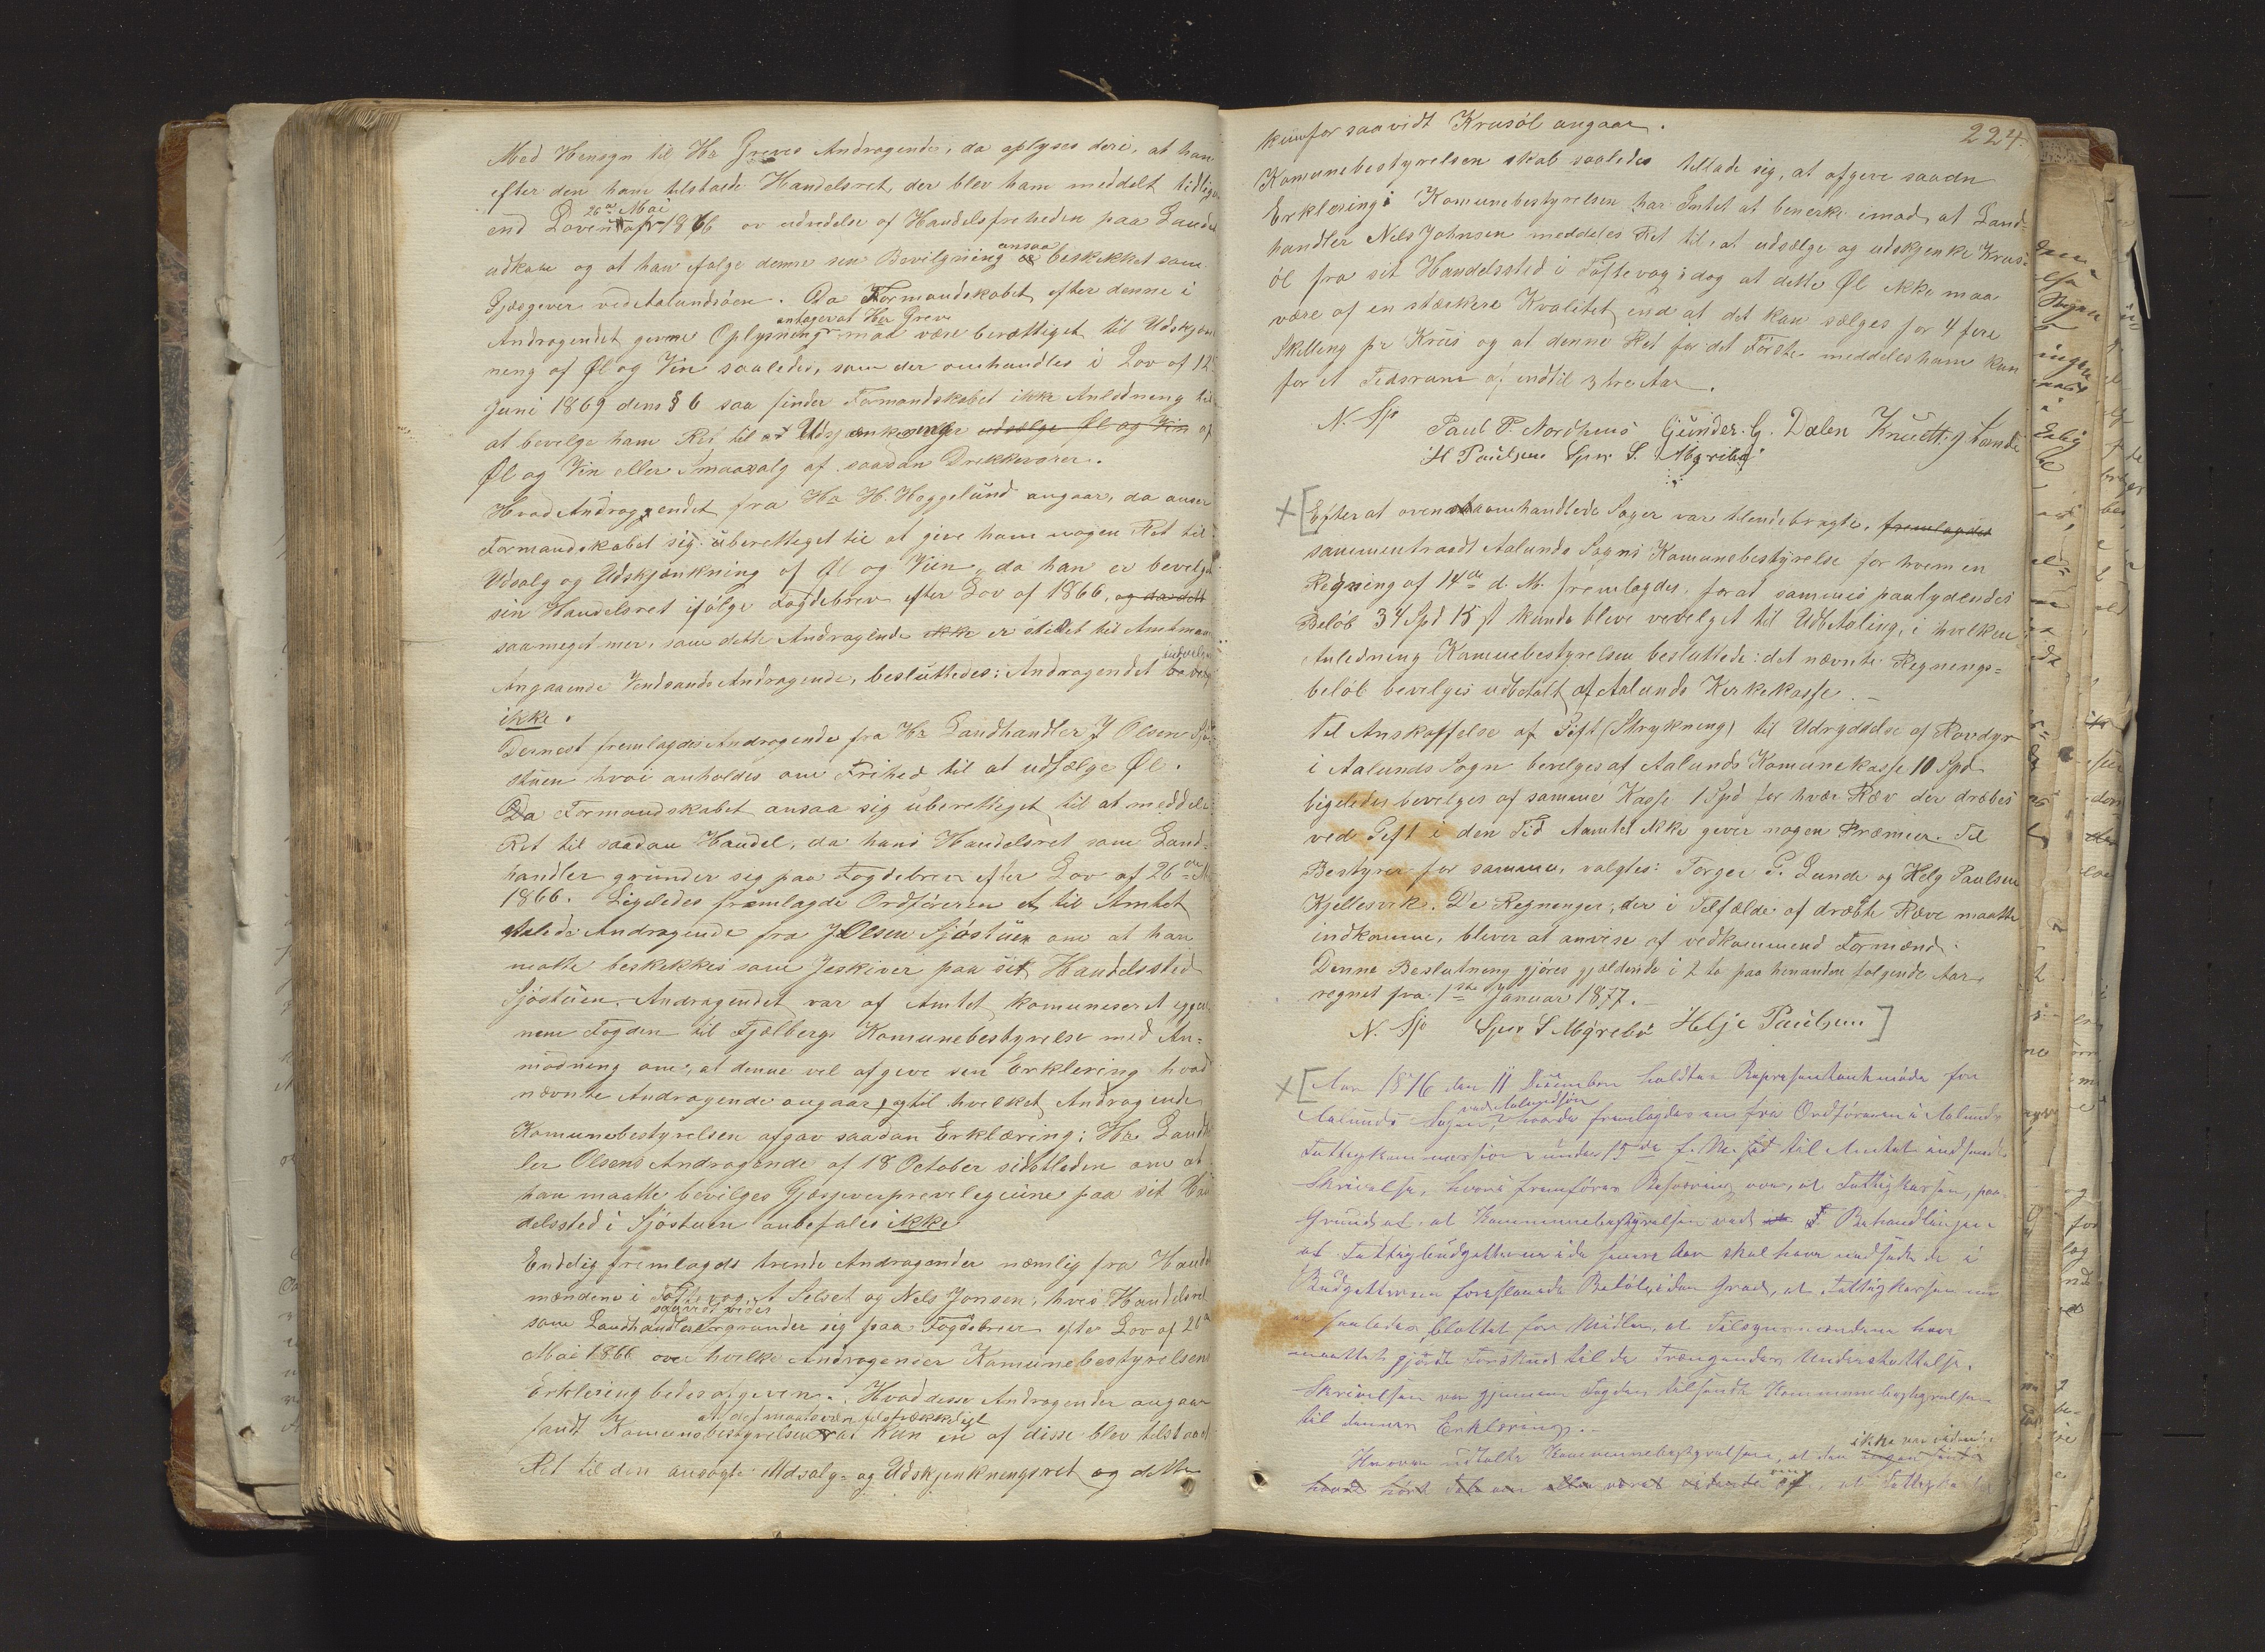 Med Hensyn til Hr Greves Andragende, da oplyses deri, at han
efter den ham tilstaaede Handelsret, der blev ham meddelt tidligere
26de Mai
end Loven af 1866 om udvidelse af Handelsfriheden paa Landet
ansaa
udkom og at han ifølge denne sin Bevilgning er beskikket som
Gjæsgiver ved Aalundsöen. Da Formandskabet efter denne i
antager at Hr Greve
Andragendet givne Oplysning maa være berættiget til Udskjænk
ning af Øl og Vin saaledes, som der omhandles i Lov af 12
Juni 1869 dens § 6 saa finder Formandskabet ikke Anledning til
at bevilge ham Ret til at Udskjænkning udsælge Øl og Vin af
Øl og Vin eller Smaasalg af saadan Drikkevarer.
Hvad Andragendet fra Hr H. Heggelund angaar, da anser
Formandskabet sig uberettiget til at give ham nogen Ret til
Udsalg og Udskjænkning af Øl og Viin, da han er bevilget
sin Handelsret ifølge Fogdebrev efter Lov af 1866, og da dette
saameget mer, som dette Andragende ikke er stillet til Amtmanden
Angaaende Vendsands Andragende, besluttedes: Andragendet
ikke.
Dernest fremlagdes Andragende fra Hr Landhandler J Olsen Sjö
stuen hvori anholdes om Frihed til at udsælge Øl.
Da Formandskabet ansaa sig uberettiget til at meddele
Ret til saadan Handel, da hans Handelsret som Land=
handler grunder sig paa Fogdebrev efter Lov af 26de M
1866. Ligeledes fremlagde Ordføreren et til Amtet
stilede Andragende fra J Olsen Sjöstuen om at han
matte beskikkes som Jeskiver paa sit Handelssted
Sjöstuen. Andragendet var af Amtet komuniseret igjen
nem Fogden til Fjelbergs Komunebestyrelse med An=
modning om, at denne vil afgive sin Erklering hvad
nævnte Andragende angaar, og til hvilket Andragende
Komunebestyrelsen afgav saadan Erklæring: Hr Landh
ler Olsens Andragende af 18 October sidstleden om at
han maatte bevilges Gjæsgiverprevelegium paa sit Han
delssted i Sjöstuen anbefales ikke
Endelig fremlagdes trende Andragender nemlig fra Handels
mændene i Toftevag A Selset og Nels Jonsen, hvis Handelsret
saavidt vides
som Landhandlere grunder sig paa Fogdebrev efter Lov af 26de
Mai 1866 over hvilke Andragender Komunebestyrelsens
Erklering bedes afgiven. Hvad disse Andragender angaar
at det maatte være tilstrækkeligt
fandt Komunebestyrelsen at kun en af disse blev tilstaaet
Ret til den ansøgte Udsalgs og Udskjenkningsret og dette
224.
kun for saavidt Krusöl angaar.
Komunebestyrelsen skal saaledes tillade sig, at afgive saadn
Erklering: Komunebestyrelsen har Intet at bemerke imod, at Land=
handler Nels Johnsen meddeles Ret til, at udsælge og udskjenke Krus=
öl fra sit Handelssted i Toftevag; dog at dette Øl ikke maa
være af en stærkere Kvalitet end at det kan sælges for 4 fire
Skilling pr Kruus og at denne Ret for det Förste meddeles ham kun
for et Tidsrum af indtil 3 tre Aar.
N. Sp
Paul P. Nordhuus Gunder. G. Dalen Knut T. Lande
H Paulsen Iver S. Myrebö
Efter at ovenomhandlede Sager var tilendebragte, fremlagdes
sammentraadt Aalunds Sogns Komunebestyrelse for hvem en
Regning af 14de d. M. fremlagdes, forat sammes paalydendes
Beløb 34 Spd 15 s kunde blive bevilget til Udbetaling, i hvilken
Anledning Komunebestyrelsen besluttede: det nævnte Regnings=
beløb bevilges udbetalt af Aalunds Kirkekasse.
Til Anskaffelse af Gift (Strykning) til Udryddelse af Rovdyr
i Aalunds Sogn bevilges af Aalunds Komunekasse 10 Spd
ligeledes bevilges af samme Kasse 1 Spd for hvær Ræv der dræbes
ved Gift i den Tid Aamtet ikke giver nogen Præmier. Til
Bestyrer for samme, valgtes: Torger G. Lunde og Helg Paulsen
Kjellesvik. De Regninger, der i Tilfælde af dræbte Ræve maatte
indkomme, bliver at anvise af vedkommend Formænd.
Denne Beslutning gjöres gjeldende i 2 to paa hinanden følgende Aar
regnet fra 1ste Januar 1877.
N. Sp Iver S Myrebö Helje Paulsen
Aar 1876 den 11 Desember holdtes Representantmøde for
ved Aalundsöen
Aalunds Sogn, hvorda fremlagdes en fra Ordföreren i Aalunds
Fattigkommission under 15de f. M. til Amtet indsendt
Skrivelse, hvori fremføres Besværing over, at Fattigkassen, paa
Grund af at Kommunebestyrelsen ved Behandlingen
af Fattigbudgetterne i de senere Aar skal have nedsatte de i
Budgetterne foreslaaede Beløb, i den Grad, at Fattigkassen nu
er saaledes blottet for Midler, at Tilsynsmændene have
maattet gjöre Forskud til de Trængendes Understøttelse.
Skrivelsen var gjennem Fogden tilsendt Kommunebestyrelsen
til dennes Erklæring.
ikke var vidende
Herom udtalte Kommunebestyrelsen, at den
havde hört Tale om eller været vidende om, at Fattigkassen